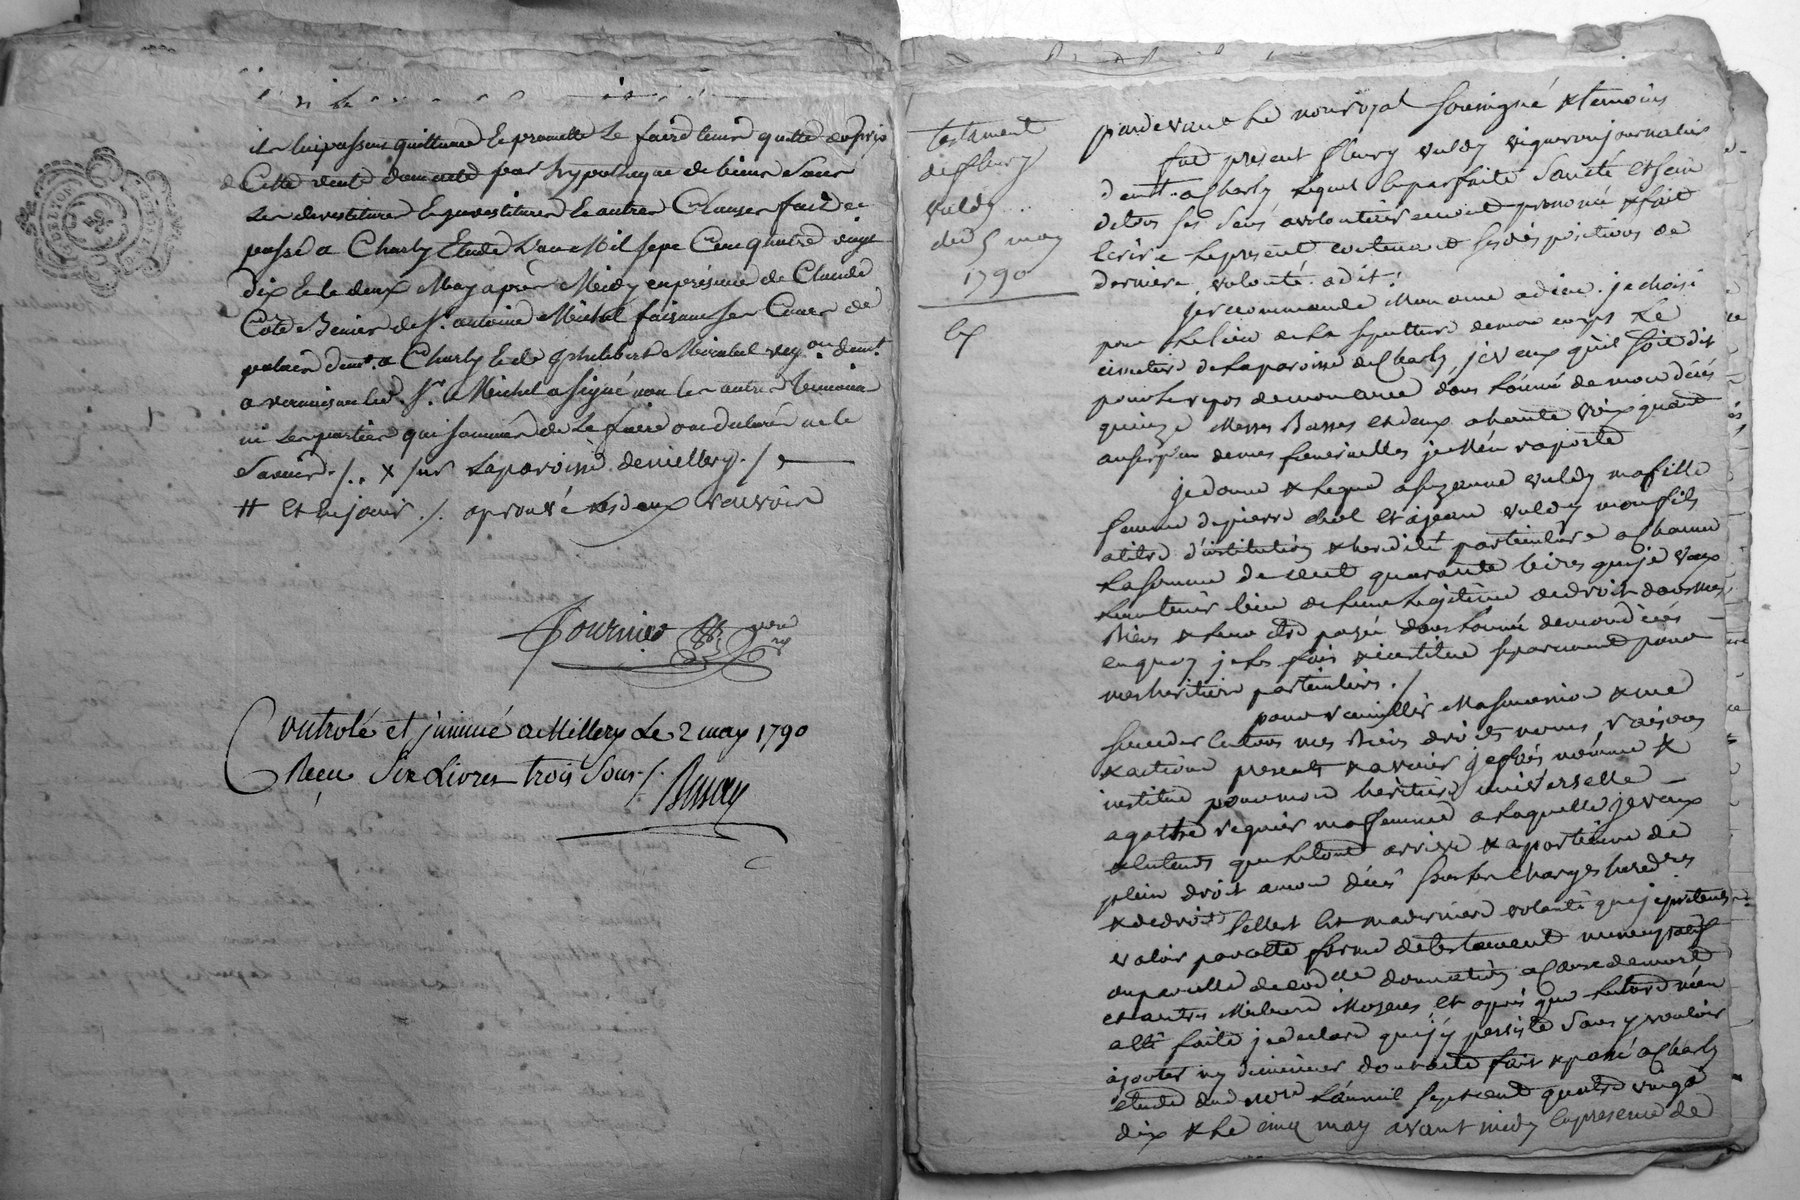 il luy passera quittance et promette le faire tenir quitte du prix
Cette vente d'ou acte par hypotheque de biens Sous
Les devestitures Et investitures Et autres Clauses fait et
passé a Charly Etude L'an Mil sept Cent quatre vingt
dix Et le deux May apres Midy en presence de Claude
Cote Benier de St. antoine Michel faisant ses Cours de
palais demt. a Charly Et de Philibert Mirabel vigon. demt.
a vernaison led. Sr. Michel a signé non les autres temoins
ni Les parties qui sommés de Le faire ont declaré ne le
Savoir ./. x sur La paroisse de millery ./
# Et le jour ./. aprouvé les deux renvois
Fournier nore ryl
Controlé et jnsinué a Millery Le 2 may 1790
Reçu Six Livres trois Sous ./.
testament
de fleury
vuldy
du 5 may
1790
pardevant Le no.re royal Soussigné & temoins
fut present fleury vuldy vigneron journalier
demt. a Charly Lequel en parfaite Santé Et sain
de tous ses Sens a volontairement prononcé & fait
Ecrire le present contenant ses dispositions de
derniere volonté a dit :
je recommande Mon ame a dieu . je choisi
pour le lieu de la sepulture de mon corps Le
cimetiere de la paroisse de Charly, je veux qu'il soit dit
pour le repos de mon ame dans L'année de mon décés
quinze Messes Basses et deux a haute voix quant
au surplus de mes funerailles je M'en raporte
je donne & Legue a suzanne vuldy ma fille
femme de pierre chol Et a jean vuldy mon fils
a titre d'institution & heredité particuliere a chacun
La somme de cent quarante livres que je veux
leur tenir lieu de leur Legitime de droit dans mes
Biens & leur etre payée dans L'année de mon décés
en quoy je les fais & institue separement pour
mes heritiers particuliers ./
pour recueillir Ma succession & me
succeder En tous mes Biens droits noms raisons
& actions presents & a venir j'ay nommé &
institué pour mon heritiere universelle
agathe regnier ma femme a laquelle je veux
& Entends que le tout arrive & apartienne de
plein droit a mon décés sous les charges hered.res
& de droit telle Est ma derniere volonté que je pretends
valoir par cette forme de testament nuncupatif
ou par celle de cod.lle donnation a Cause de mort
et autres Meilleurs Moyens, Et apres que lecture m'en
a Eté faite je declare que j'y persiste Sans y vouloir
ajouter ny diminuer dont acte fait & passé a Charly
etude dud. no.re L'an mil sept cent quatre vingt
dix & Le cinq may avant midy En presence de